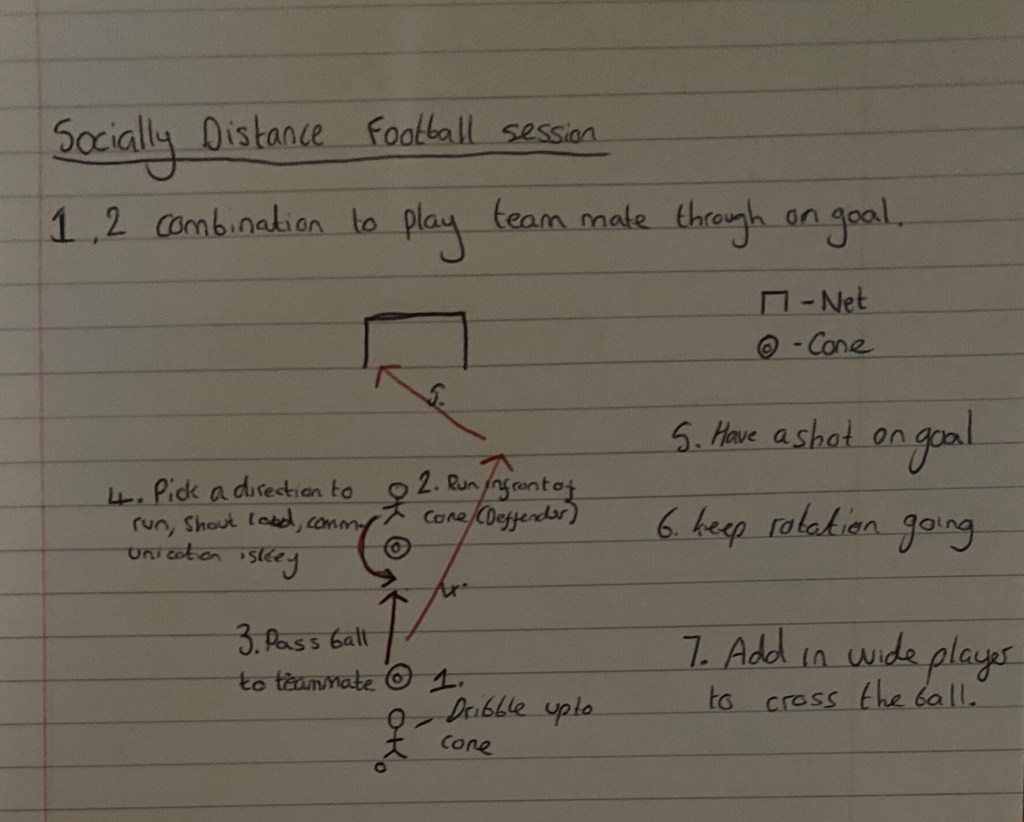 Socially Distance Football session
1,2 combination to play team mate through on goal.
- Net
- Cone
5.
5. Have a shot on goal
4. Pick a direction to
run, shout loud, comm-
unication is key
2. Run infront of
cone (Deffender)
6. keep rotation going
4.
3. Pass ball
to teammate
1.
- Dribble upto
cone
7. Add in wide player
to cross the ball.